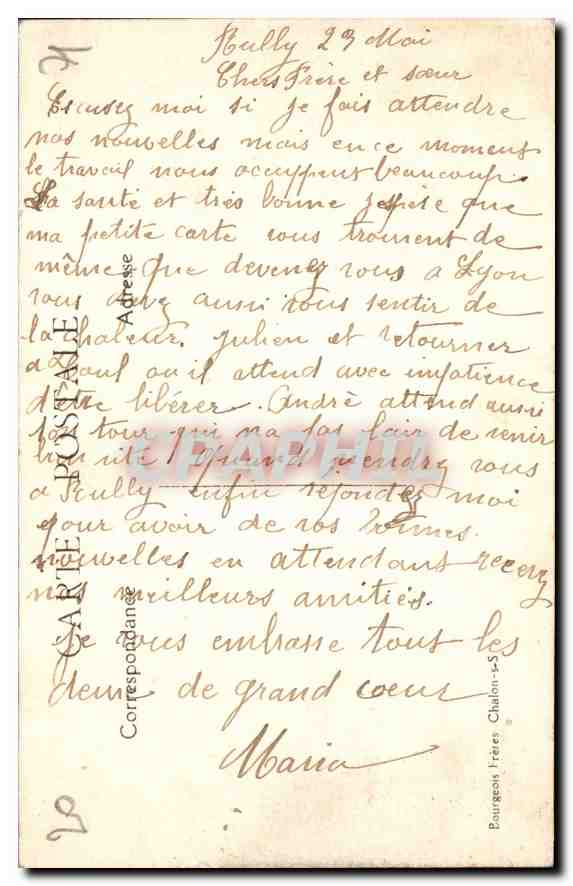 Rully 23 Mai
Chers Frère et sœur
Escusez moi si je fais attendre
nos nouvelles mais en ce moment
le travail nous occuppent beaucoup.
La santé et très bonne jespère que
ma petite carte vous trouvent de
même que devenez vous a Lyon
vous avez aussi vous sentir de
la chaleur. Julien et retourner
a Toul ou il attend avec impatience
d'être libérer. André attend aussi
son tour qui na pas lair de venir
bien vite. Quand viendrez vous
a Rully enfin réponder moi
pour avoir de vos bonnes
nouvelles en attendant recevez
nos meilleurs amitiés.
Je vous embrasse tout les
deux de grand cœur
Maria
CARTE POSTALE
Correspondance
Adresse
Bourgeois Frères Chalon-s-S
CPAPHIL
20